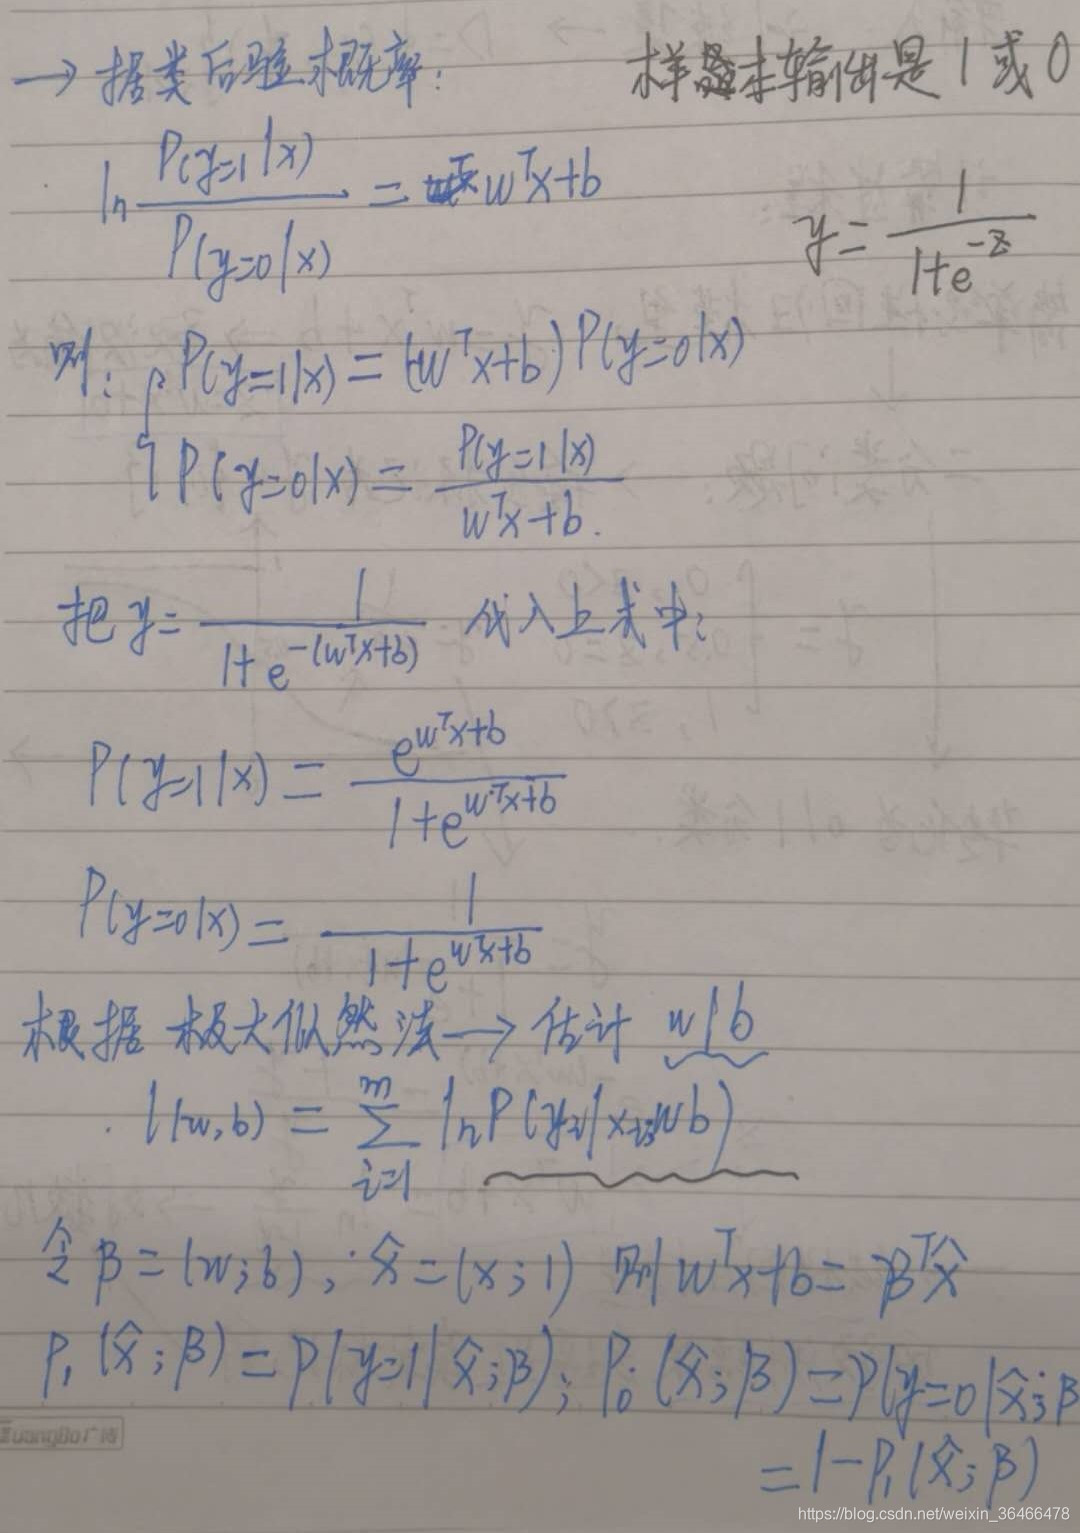 → 据类后验概率: 样本输出是1或0
ln P(y=1|x) / P(y=0|x) = wᵀx+b
y = 1 / (1+e^(-z))
则: P(y=1|x) = (wᵀx+b) P(y=0|x)
P(y=0|x) = P(y=1|x) / (wᵀx+b).
把 y = 1 / (1+e^(-(wᵀx+b))) 代入上式中:
P(y=1|x) = e^(wᵀx+b) / (1+e^(wᵀx+b))
P(y=0|x) = 1 / (1+e^(wᵀx+b))
根据极大似然法 → 估计 w/b
l(w,b) = ∑_{i=1}^{m} ln P(yi|xi;w b)
令 β = (w;b), x̂ = (x;1) 则 wᵀx+b = βᵀx̂
P₁(x̂;β) = P(y=1|x̂;β); P₀(x̂;β) = P(y=0|x̂;β
= 1-P₁(x̂;β)
GuangBo广博
https://blog.csdn.net/weixin_36466478